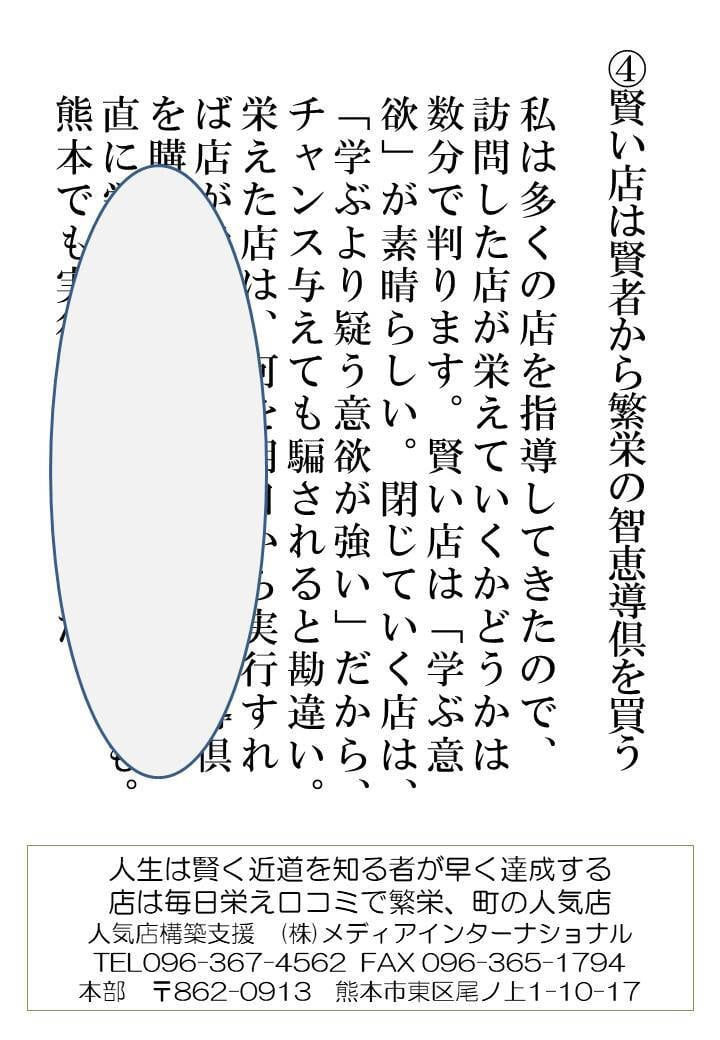 ④賢い店は賢者から繁栄の智恵導倶を買う
私は多くの店を指導してきたので、
訪問した店が栄えていくかどうかは
数分で判ります。賢い店は「学ぶ意
欲」が素晴らしい。閉じていく店は、
「学ぶより疑う意欲が強い」だから、
チャンス与えても騙されると勘違い。
栄えた店は、何を明日から実行すれ
ば店が
を購
直に
熊本でも実
人生は賢く近道を知る者が早く達成する
店は毎日栄え口コミで繁栄、町の人気店
人気店構築支援　(株)メディアインターナショナル
TEL096-367-4562 FAX 096-365-1794
本部　〒862-0913　熊本市東区尾ノ上1-10-17